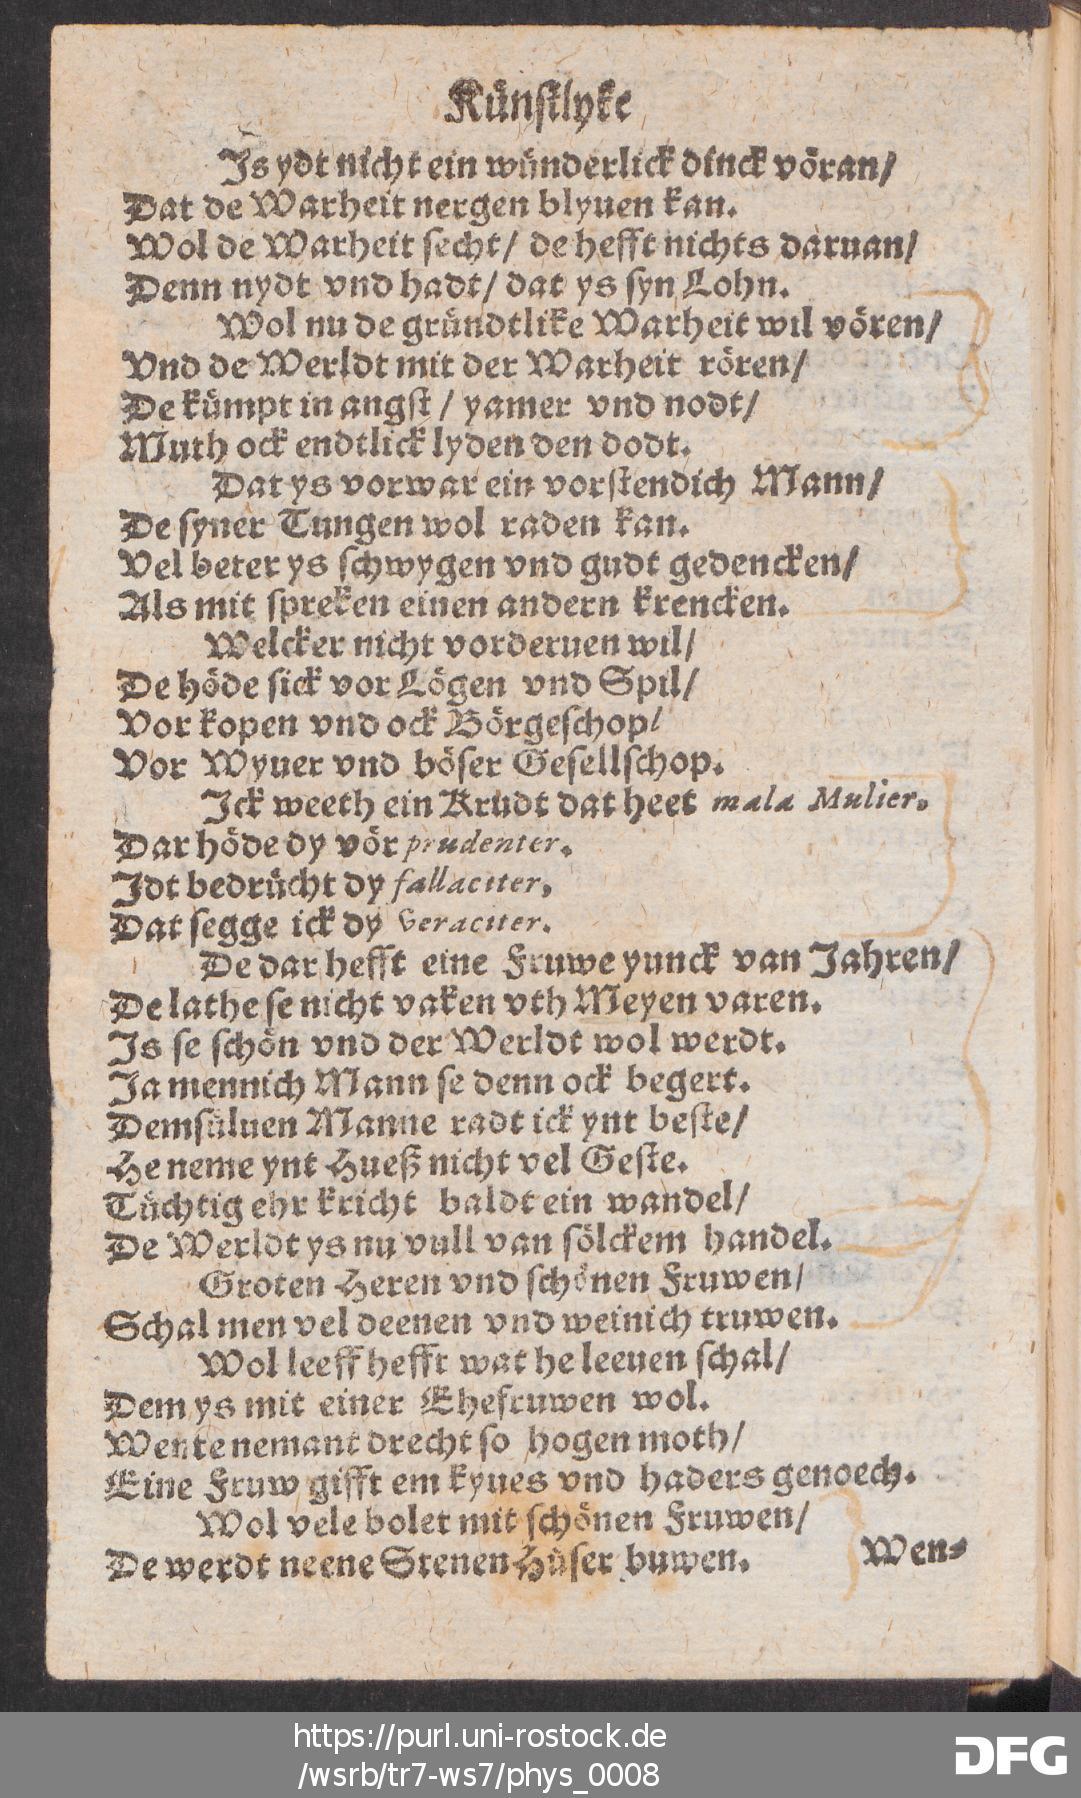 Künstlyke
Is ydt nicht ein wünderlick dinck vöran/
Dat de Warheit nergen blyuen kan.
Wol de Warheit secht/ de hefft nichts daruan/
Denn nydt vnd hadt/ dat ys syn Lohn.
Wol nu de gründtlike Warheit wil vören/
Vnd de Werldt mit der Warheit rören/
De kümpt in angst/ yamer vnd nodt/
Muth ock endtlick lyden den dodt.
Dat ys vorwar ein vorstendich Mann/
De syner Tungen wol raden kan.
Vel beter ys schwygen vnd gudt gedencken/
Als mit spreken einen andern krencken.
Welcker nicht vorderuen wil/
De höde sick vor Lögen vnd Spil/
Vor kopen vnd ock Börgeschop/
Vor Wyuer vnd böser Gesellschop.
Ick weeth ein Krudt dat heet mala Mulier.
Dar höde dy vör prudenter.
Idt bedrücht dy fallaciter,
Dat segge ick dy veraciter.
De dar hefft eine Fruwe yunck van Jahren/
De lathe se nicht vaken vth Meyen varen.
Is se schön vnd der Werldt wol werdt.
Ja mennich Mann se denn ock begert.
Demsüluen Manne radt ick ynt beste/
He neme ynt Hueß nicht vel Geste.
Tüchtig ehr kricht baldt ein wandel/
De Werldt ys nu vull van sölckem handel.
Groten Heren vnd schönen Fruwen/
Schal men vel deenen vnd weinich truwen.
Wol leeff hefft wat he leeuen schal/
Dem ys mit einer Ehefruwen wol.
Wente nemant drecht so hogen moth/
Eine Fruw gifft em kyues vnd haders genoech.
Wol vele bolet mit schönen Fruwen/
De werdt neene Stenen Hüser buwen.
Wen-
https://purl.uni-rostock.de
/wsrb/tr7-ws7/phys_0008
DFG